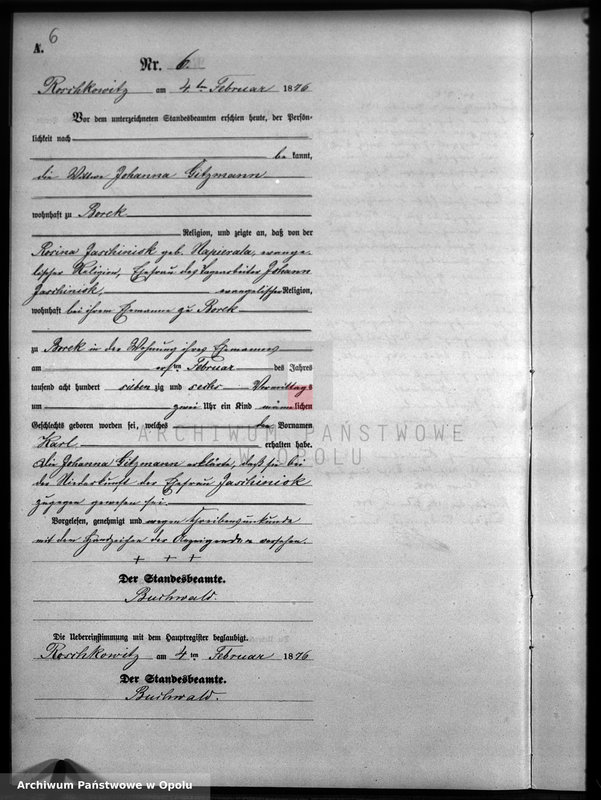 6
A.
Nr. 6.
Roschkowitz am 4ten Februar 1876
Vor dem unterzeichneten Standesbeamten erschien heute, der Persön-
lichkeit nach
be kannt,
die Wittwe Johanna Gitzmann
wohnhaft zu Borek
Religion, und zeigte an, daß von der
Rosina Jaschinisk geb. Napierala, evange-
lischer Religion, Ehefrau des Johann
Jaschinisk, evangelischer Religion,
wohnhaft bei ihrem Ehemanne zu Borek
zu Borek in der Wohnung ihres Ehemannes
am ersten Februar des Jahres
tausend acht hundert sieben zig und sechs Vormittags
um zwei Uhr ein Kind männlichen
Geschlechts geboren worden sei, welches den Vornamen
Karl erhalten habe.
Die Johanna Gitzmann erklärte, daß sie bei
der Niederkunft der Ehefrau Jaschiniok
zugegen gewesen sei.
Vorgelesen, genehmigt und wegen Schreibensunkunde
mit dem Handzeichen der Anzeigenden versehen.
+ + +
Der Standesbeamte.
Buchwald.
Die Uebereinstimmung mit dem Hauptregister beglaubigt.
Roschkowitz am 4ten Februar 1876
Der Standesbeamte.
Buchwald.
ARCHIWUM PAŃSTWOWE
W OPOLU
Archiwum Państwowe w Opolu